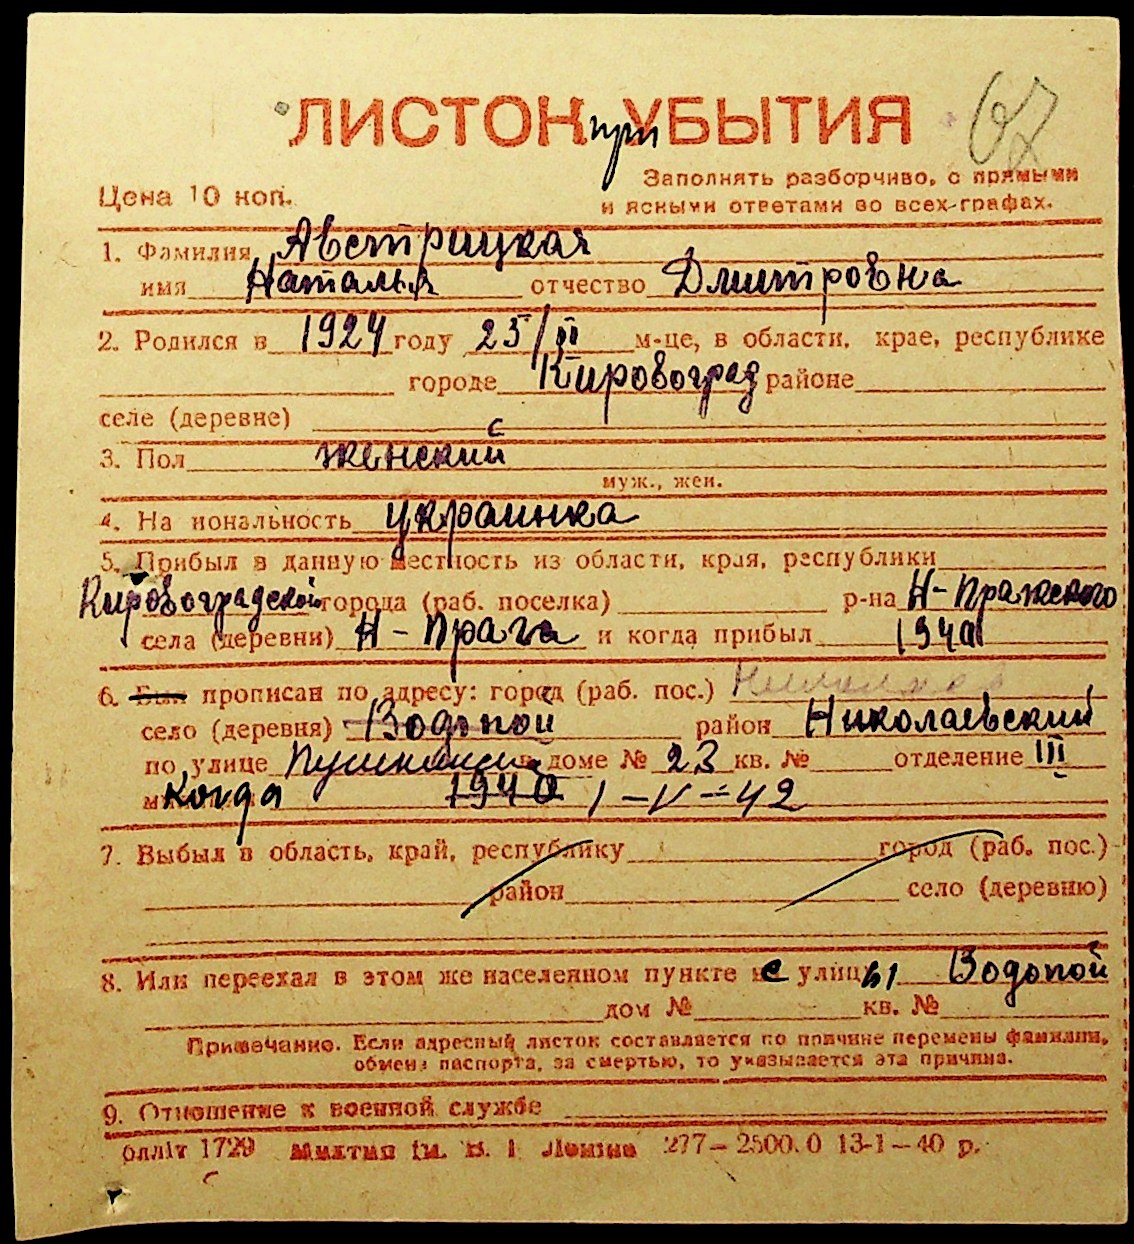 ЛИСТОК при УБЫТИЯ 67
Заполнять разборчиво, с прямыми
Цена 10 коп. и ясными ответами во всех графах.
1. Фамилия Австрицкая
имя Наталья отчество Дмитровна
2. Родился в 1924 году 25/III м-це, в области, крае, республике
городе Кировоград районе
селе (деревне)
3. Пол женский
муж., жен.
4. На иональность украинка
5. Прибыл в данную местность из области, края, республики
Кировоградской города (раб. поселка) р-на Н-Пражского
села (деревни) Н-Прага и когда прибыл 1940
6. Был прописан по адресу: город (раб. пос.)
село (деревня) Водопой район Николаевский
по улице Пушкинская доме № 23 кв. № отделение III
когда 1940 1-V-42
7. Выбыл в область, край, республику город (раб. пос.)
район село (деревню)
8. Или переехал в этом же населенном пункте с улицы Водопой
дом № кв. №
Примечание. Если адресный листок составляется по причине перемены фамилии,
обмена паспорта, за смертью, то указывается эта причина.
9. Отношение к военной службе
1729 277—2500.0 13-1—40 р.